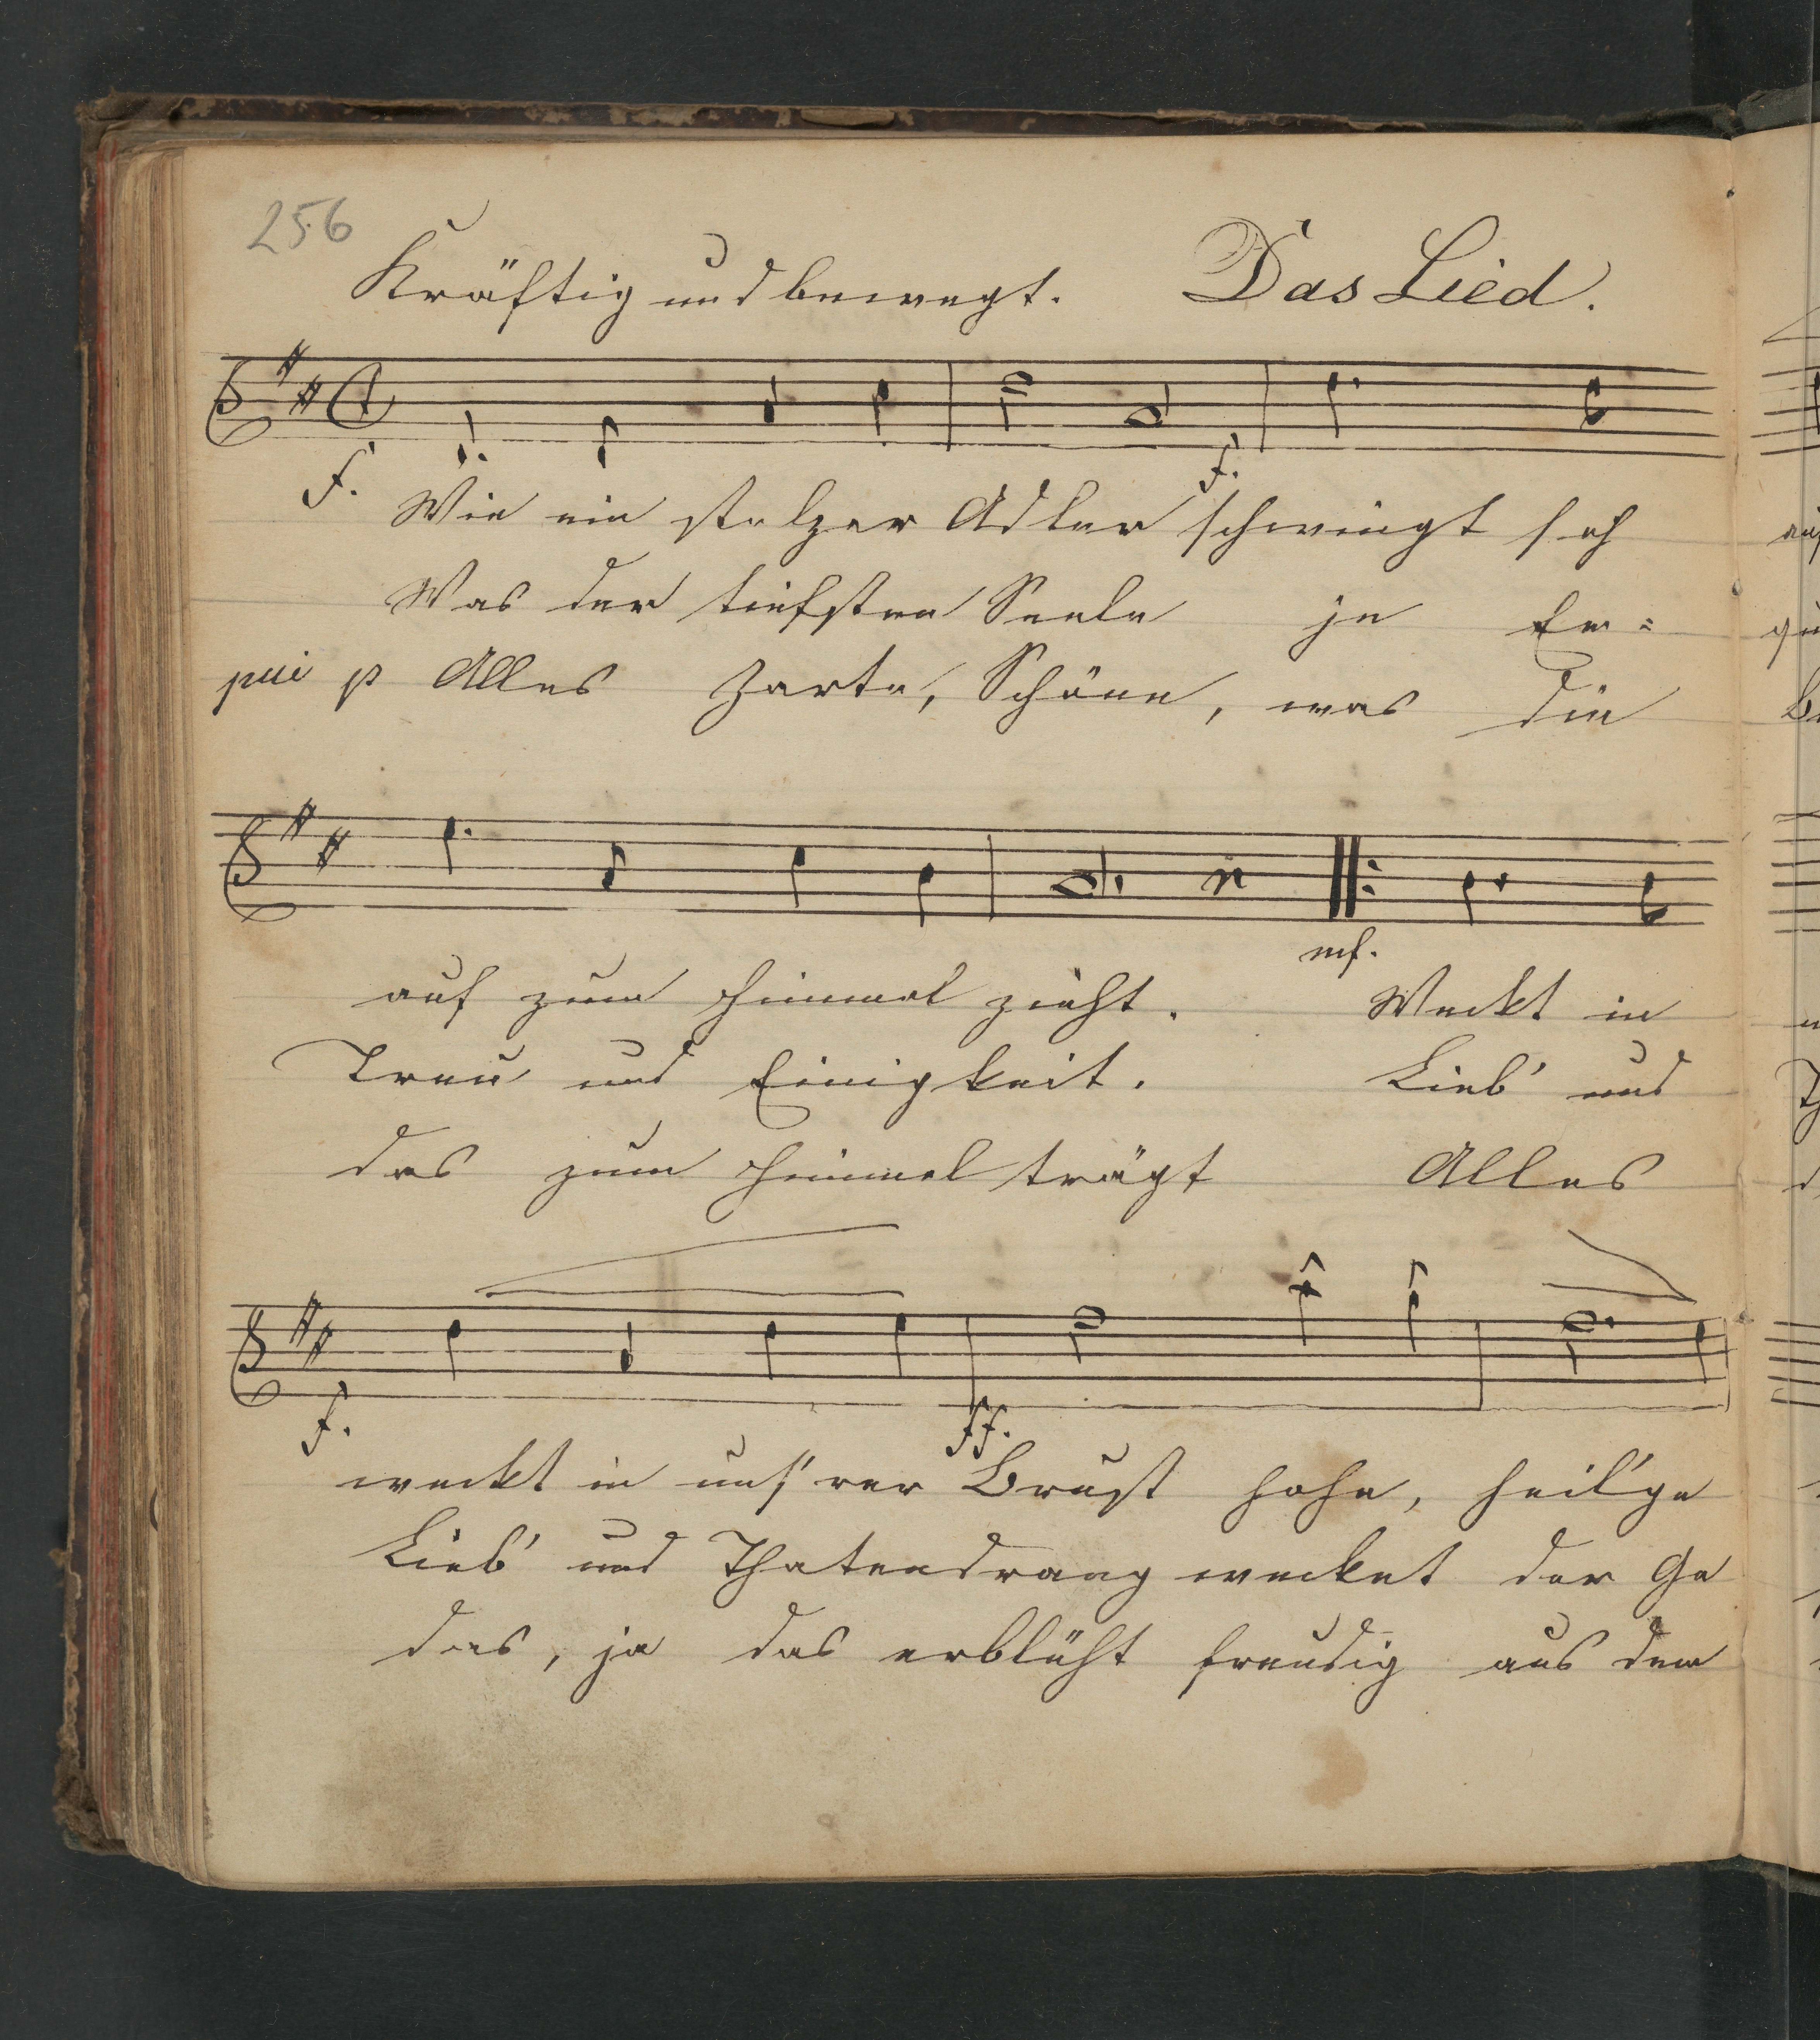 256
Kräftig und bewegt. Das Lied.
f. f.
Wie ein stolzer Adler schwingt sich
Was der tiefsten Seele je Er=
p Alles Zarte, Schöne, was die
mf.
auf zum Himmel zieht. Weckt in
Treu und Einigkeit. Lieb' und
das zum Himmel trägt Alles
f. ff.
weckt in uns'rer Brust hohe, heil'ge
Lieb' und Thatendrang wecket der Ge
das, ja das erblüht freudig aus dem